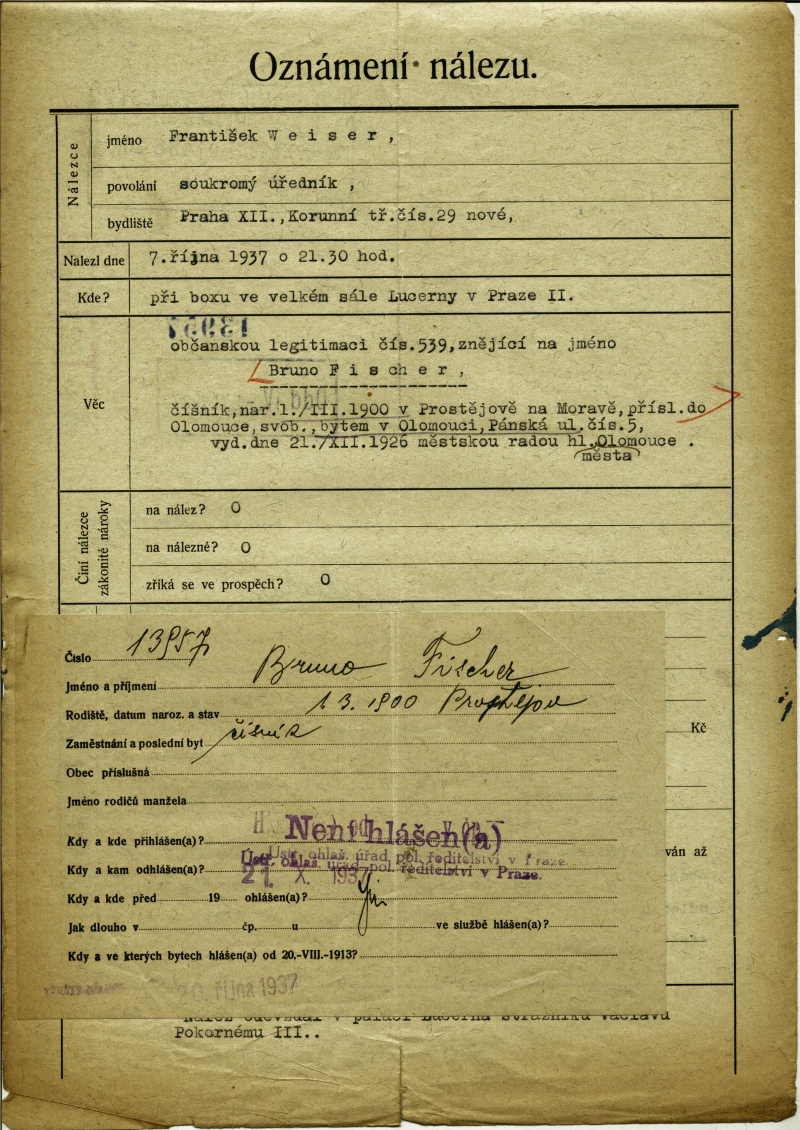 Oznámení nálezu.
Nálezce
jméno František W e i s e r ,
povolání soukromý úředník ,
bydliště Praha XII.,Korunní tř.čís.29 nové,
Nalezl dne 7.října 1937 o 21.30 hod.
Kde? při boxu ve velkém sále Lucerny v Praze II.
13957
Věc
občanskou legitimaci čís.539,znějící na jméno
Bruno F i s c h e r ,
číšník,nar.1./III.1900 v Prostějově na Moravě,přísl.do
Olomouce,svob.,bytem v Olomouci,Pánská ul.čís.5,
vyd.dne 21./XII.1926 městskou radou hl.,Olomouce .
města
Činí nálezce
zákonité nároky
na nález? O
na nálezné? O
zříká se ve prospěch? O
Číslo 13957
Jméno a příjmení Bruno Fischer
Rodiště, datum naroz. a stav 1 3. 1900 Prostějov
Zaměstnání a poslední byt číšník
Kč
Obec příslušná
Jméno rodičů manžela
Kdy a kde přihlášen(a)? Není hlášen(a)
ván až
Ústř. ohlaš. úřad pol. ředitelství v Praze.
Kdy a kam odhlášen(a)? Ústř. ohlaš. úřad pol. ředitelství v Praze.
21. X. 1937
Kdy a kde před 19 ohlášen(a)?
Jak dlouho v čp. u ve službě hlášen(a)?
Kdy a ve kterých bytech hlášen(a) od 20.-VIII.-1913?
1937
Nález odevzdal v paláci Lucerna strážníku Václavu
Pokornému III..